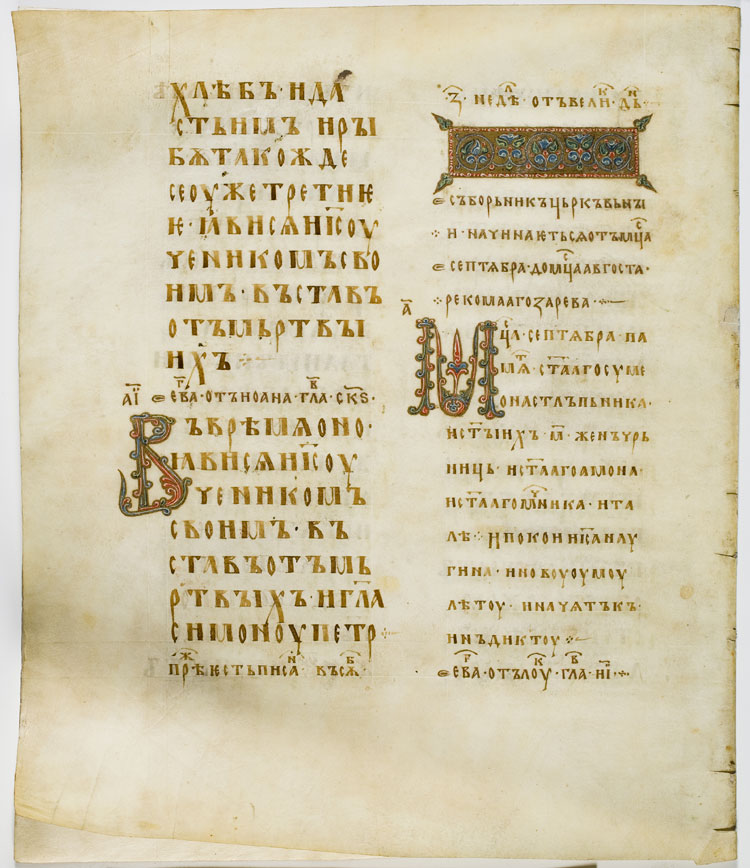 ХЛѢБЪ· И ДА
СТЬ ИМЪ И РЫ
БѪ ТАКОЖДЕ
СЕ ОУЖЕ ТРЕТИѤ
Ѥ· ꙖВИ СѦ Н҃С ОУ
ЧЕНИКОМЪ СВО
ИМЪ· ВЪСТАВЪ
ОТЪ МЬРТВЫ
ИХЪ
А҃Ї ЕВ҃Г А· ОТЪ ИОАНА· ГЛ҃А· СК҃Ѕ·
ВЪ ВРѢМѦ ОНО·
ꙖВИ СѦ ІС҃ ОУ
ЧЕНИКОМЪ
СВОИМЪ· ВЪ
СТАВЪ ОТЪ МЬ
РТВЫХЪ· И ГЛ҃А
СИМОНОУ ПЕТР·
ПРѢЖ ѤСТЬ ПИСАН ВЪ СѪБ·
З҃· НЕДѢЛ ОТЪ ВЕЛИК· ДЬН·
СЪБОРЬНИКЪ ЦЬРКЪВЬНЫ
И· НАЧИНАѤТЬСѦ ОТЪ МС҃ЦА
СЕПТѦБРА· ДО МС҃ЦА АВГОСТА·
РЕКОМААГО ЗАРЕВА·
А҃
МЦ҃А· СЕПТѦБРА· ПА
МѦТ· СТ҃ААГО СУМЕ
ОНА СТЛЪПЬНИКА·
И СТ҃ЫИХЪ М҃· ЖЕНЪ УРЬ
НИЦЬ· И СТ҃ААГО АМОНА·
И СТ҃ААГО МЧ҃НИКА· ИТА
ЛѢ· И ПОКОИ ІС҃А НАУ
ГИНА· И НОВОУОУМОУ
ЛѢТОУ· И НАЧѦТЪК·
ИНЪДИКТОУ·
ЕВ҃Г А· ОТЪ ЛОУК· ГЛ҃А· Н҃І·